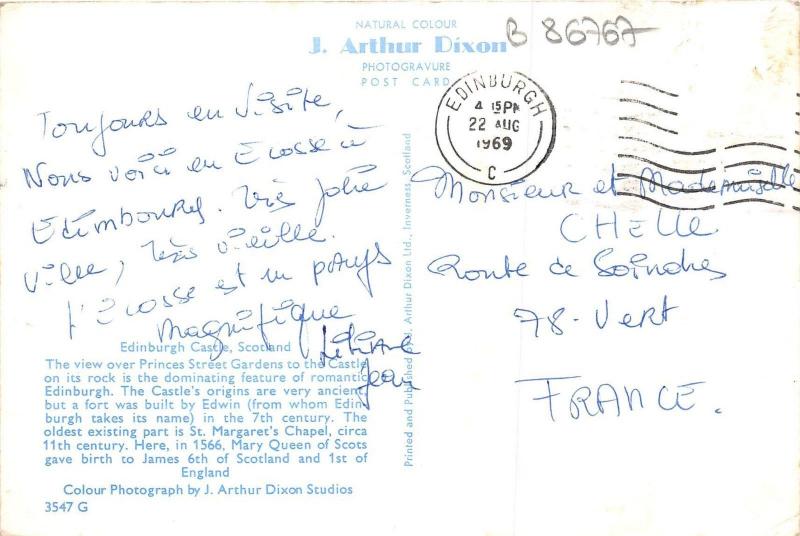 NATURAL COLOUR
J. Arthur Dixon
PHOTOGRAVURE
POST CARD
B 86767
EDINBURGH
4 15 PM
22 AUG
1969
C
Toujours en visite,
Nous voici en Ecosse à
Edimbourg. très jolie
ville, très vieille.
l'Ecosse est un pays
magnifique
Jean
Monsieur et Mademoiselle
CHELLE
Route de Soindres
78 - Vert
FRANCE.
Edinburgh Castle, Scotland
The view over Princes Street Gardens to the Castle
on its rock is the dominating feature of romantic
Edinburgh. The Castle's origins are very ancient
but a fort was built by Edwin (from whom Edin-
burgh takes its name) in the 7th century. The
oldest existing part is St. Margaret's Chapel, circa
11th century. Here, in 1566, Mary Queen of Scots
gave birth to James 6th of Scotland and 1st of
England
Colour Photograph by J. Arthur Dixon Studios
3547 G
Printed and Published by J. Arthur Dixon Ltd., Inverness, Scotland